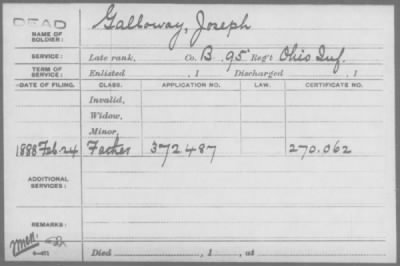 DEAD
NAME OF SOLDIER: Galloway, Joseph
SERVICE: Late rank, Co. B. 95 Reg't Ohio Inf.
TERM OF SERVICE: Enlisted , 1 Discharged , 1
DATE OF FILING. CLASS. APPLICATION NO. LAW. CERTIFICATE NO.
Invalid,
Widow,
Minor,
1888 Feb 24 Father 372487 270.062
ADDITIONAL SERVICES:
REMARKS:
Died , 1 , at